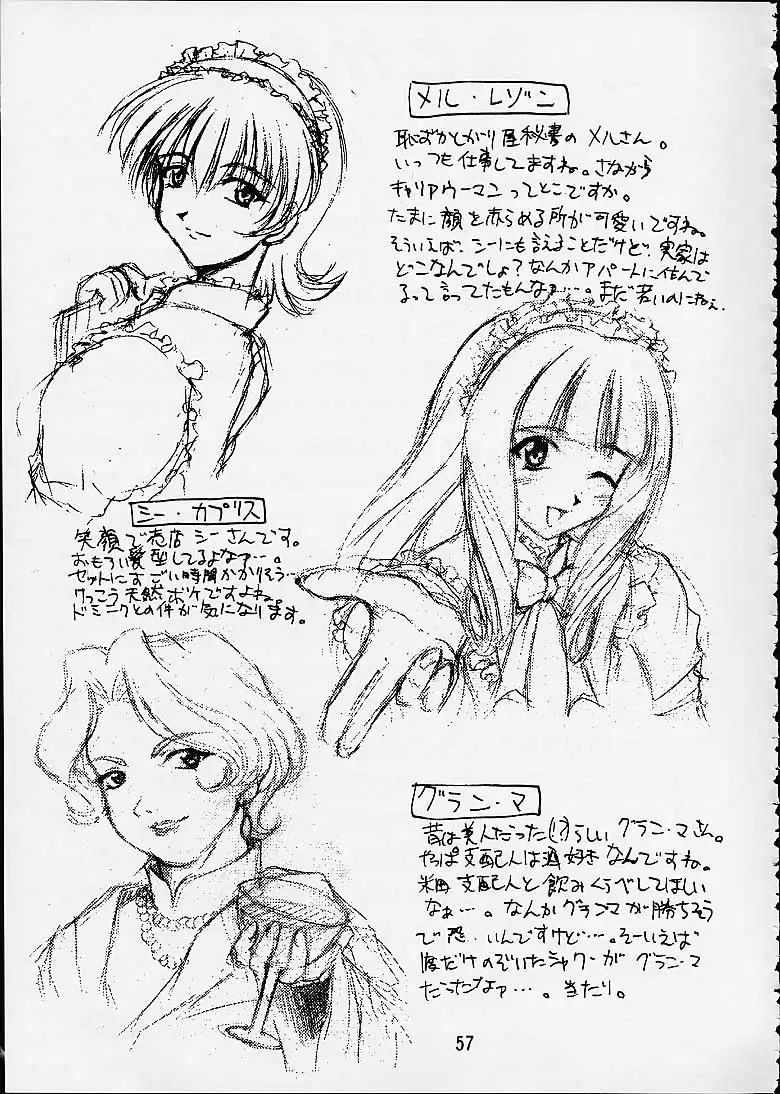 メル・レゾン
恥ずかしがり屋秘書の メルさん。
いっつも仕事してますね。さながら
キャリアウーマンってとこですか。
たまに顔を赤らめる所が可愛いですね。
そういえば、シーにも言えることだけど、実家は
どこなんでしょ?なんかアパートに住んで
るって言ってたもんなァ…。まだ若いのにねぇ.
シー・カプリス
笑顔で売店 シーさんです。
おもろい髪型してるよなァ…。
セットにすごい時間かかりそう…
けっこう天然ボケですよね。
ドミニークとの件が気になります。
グラン・マ
昔は美人だった(!?)らしい グラン・マさん。
やっぱ支配人は酒好きなんですね。
米田支配人と飲みくらべしてほしい
なぁ…。なんかグランマが勝ちそう
で恐いんですけど…。そーいえば
度だけのぞいたシャワーが グラン・マ
だったなァ…。当たり。
57